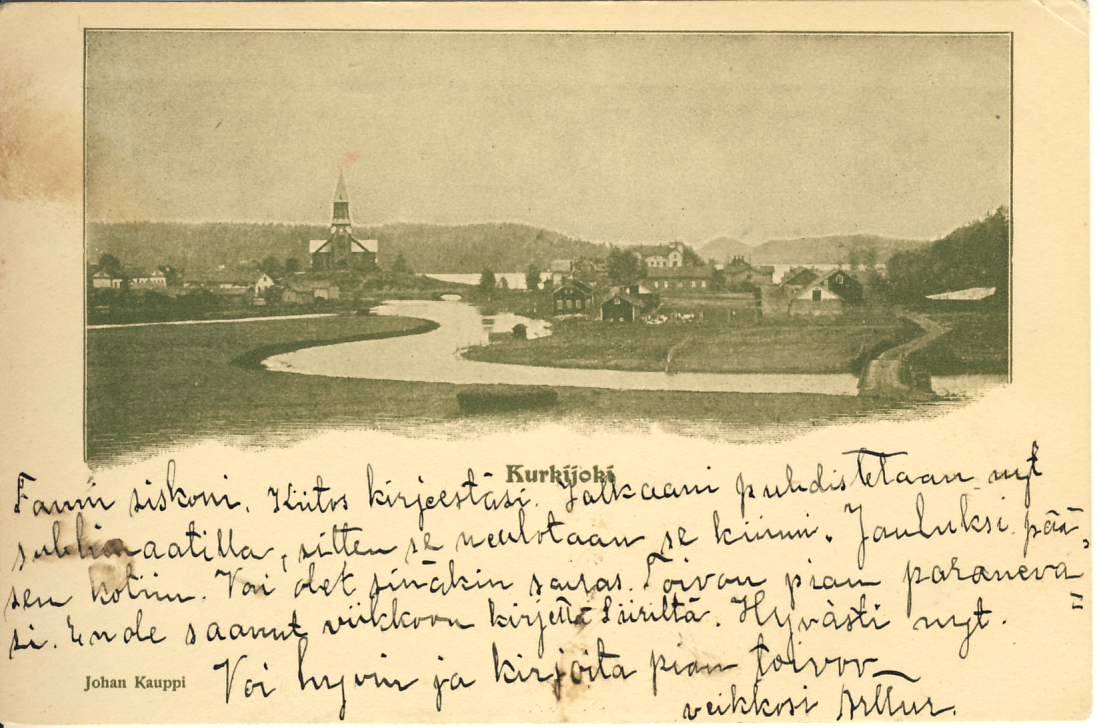 Kurkijoki
Fanni siskoni. Kiitos kirjeestäsi. Jalkaani puhdistetaan nyt
sublimaatilla, sitten se neulotaan se kiinni. Jouluksi pää-
sen kotiin. Voi olet sinäkin sairas. Toivon pian paraneva
si. En ole saanut viikkoon kirjettä Siiriltä. Hyvästi nyt.
Voi hyvin ja kirjoita pian toivoo
veikkosi Arttur.
Johan Kauppi